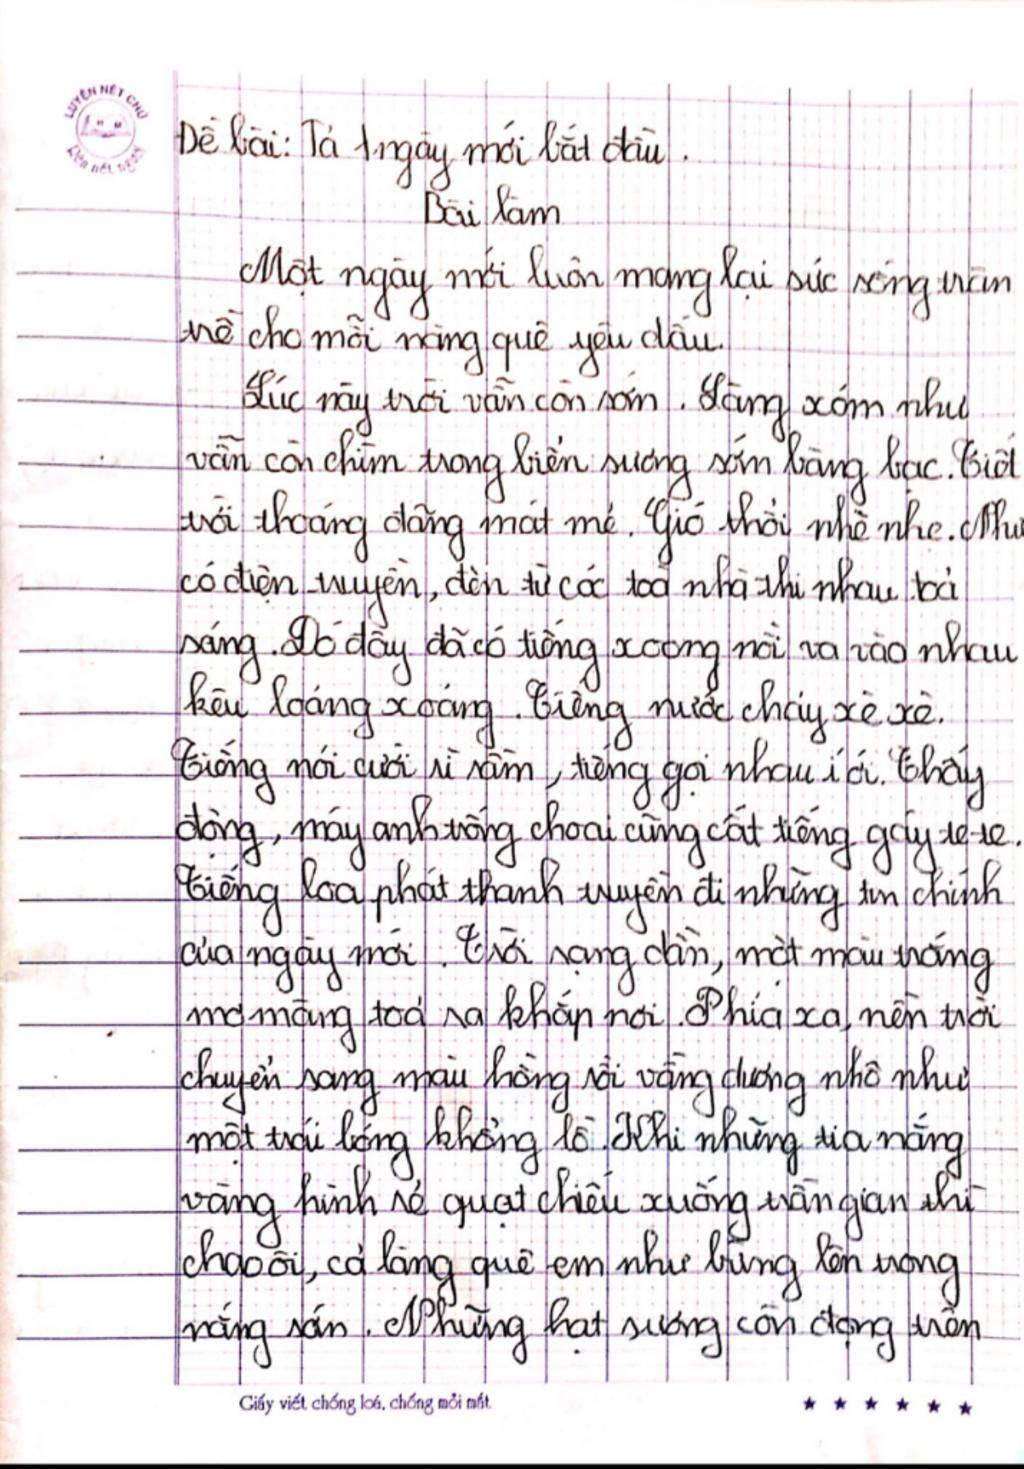 LUYỆN NÉT CHỮ
RÈN NẾT NGƯỜI
Đề bài: Tả 1 ngày mới bắt đầu.
Bài làm
Một ngày mới luôn mang lại sức sống tràn
trề cho mỗi nàng quê yêu dấu.
Lúc này trời vẫn còn sớm. Làng xóm như
vẫn còn chìm trong biển sương sớm bàng bạc. Tiết
trời thoáng đãng mát mẻ. Gió thổi nhè nhẹ. Như
có điện truyền, đèn từ các toà nhà thi nhau toả
sáng. Đó đây đã có tiếng xoong nồi va vào nhau
kêu loảng xoảng. Tiếng nước chảy xè xè.
Tiếng nói cười rì rầm, tiếng gọi nhau í ới. Thấy
động, mấy anh trống choai cũng cất tiếng gáy te te.
Tiếng loa phát thanh truyền đi những tin chính
của ngày mới. Trời sạng dần, một màu trắng
mơ màng toả ra khắp nơi. Phía xa, nền trời
chuyển sang màu hồng rồi vầng dương nhô như
một trái bóng khổng lồ. Khi những tia nắng
vàng hình rẻ quạt chiếu xuống trần gian thì
chao ôi, cả làng quê em như bừng lên trong
nắng sớm. Những hạt sương còn đọng trên
Giấy viết chống loá, chống mỏi mắt